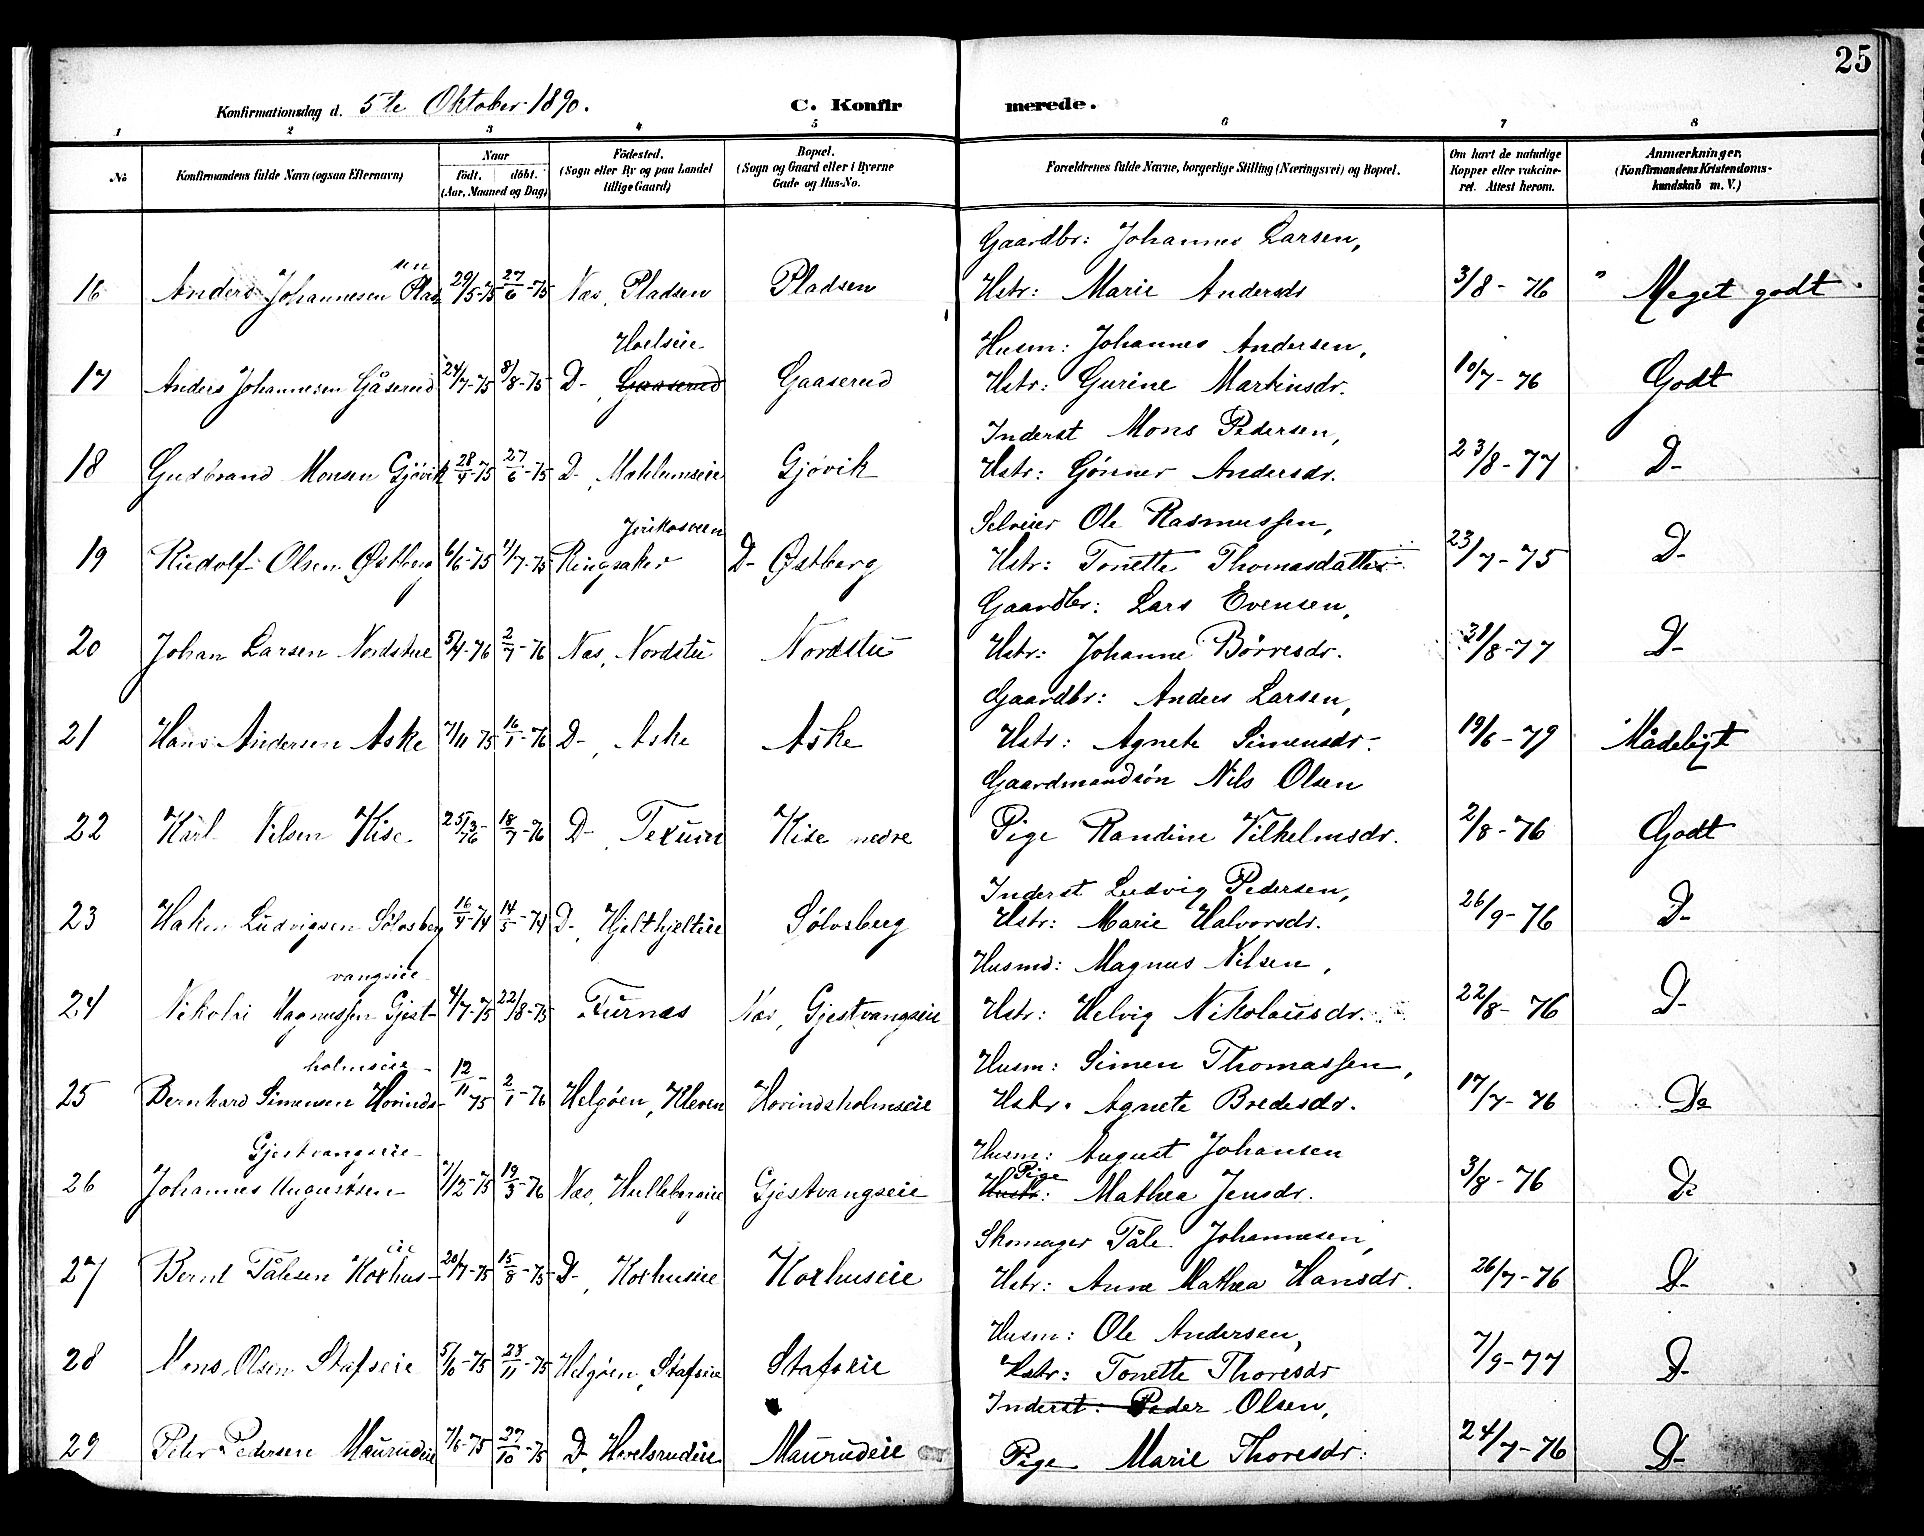 25
Konfirmationsdag d. 5te Oktober 1890. C. Konfirmerede.
1 2 3 4 5 6 7 8
No Konfirmandens fulde Navn (ogsaa Efternavn) Naar født. døbt. (Aar, Maaned og Dag) Fødested. (Sogn eller By og paa Landet tillige Gaard) Bopæl. (Sogn og Gaard eller i Byerne Gade og Hus-No. Forældrenes fulde Navne, borgerlige Stilling (Næringsvei) og Bopæl. Om havt de naturlige Kopper eller vakcineret. Attest herom. Anmærkninger. (Konfirmandens Kristendomskundskab m. V.)
sen Gaardbr: Johannes Larsen,
16 Anders Johannesen Plad 29/5-75 27/6-75 Næs, Pladsen Pladsen Hstr: Marie Andersdr 3/8-76 Meget godt
Hoelseie Husm: Johannes Andersen,
17 Anders Johannesen Gåserud 24/7-75 8/8-75 D-, Gaaserud Gaaserud Hstr: Gurine Martinsdr. 10/7-76 Godt
Inderst Mons Pedersen,
18 Gudbrand Monsen Gjøvik 28/4-75 27/6-75 D-, Mæhlumseie Gjøvik Hstr: Gønner Andersdr. 23/8-77 D-
Selveier Ole Rasmussen,
19 Rudolf Olsen Østberg 6/6-75 11/7-75 Ringsaker D- Østberg Hstr: Tonette Thomasdatter 23/7-75 D-
Gaardbr: Lars Evensen,
20 Johan Larsen Nordstue 5/4-76 2/7-76 Næs, Nordstu Nordstu Hstr: Johanne Børresdr. 31/8-77 D-
Gaardbr: Anders Larsen,
21 Hans Andersen Aske 7/11 75 16/1-76 D-, Aske Aske Hstr: Agnete Simensdr. 19/6-79 Mådeligt
Gaardmandsøn Nils Olsen
22 Karl Nilsen Kise 25/3-76 18/7-76 D-, Texum Kise nedre Pige Randine Vilhelmsdr. 2/8-76 Godt
Inderst Ludvig Pedersen,
23 Haken Ludvigsen Sølvsberg 16/4-74 14/5-74 D-, Hjelthjelteie Sølvsberg Hstr: Marie Halvorsdr. 26/9-76 D-
vangseie Husmd: Magnus Nilsen,
24 Nikolai Magnussen Gjest- 4/7-75 22/8-75 Furnæs Næs, Gjestvangseie Hstr: Helvig Nikolausdr. 22/8-76 D-
holmseie Husm: Simen Thomassen,
25 Bernhard Simensen Hovinds- 12/11-75 2/1-76 Helgøen, Kleven Hovindsholmseie Hstr. Agnete Bredesdr. 17/7-76 Do
Gjestvangseie Husm: August Johansen
26 Johannes Augustsen 7/12-75 19/3-76 Næs, Hullebergeie Gjestvangseie Hustr: Pige Mathea Jensdr. 3/8-76 Do
eie Skomager Påle Johannesen,
27 Bernt Pålesen Korhus- 20/7-75 15/8-75 D-, Korhuseie Korhuseie Hstr: Anne Mathea Hansdr. 26/7-76 D-
Husm: Ole Andersen,
28 Mons Olsen Stafseie 28/11-75 Helgøen, Stafseie Stafseie Hstr: Tonette Thoresdr 7/9-77 D-
Inderst: Peder Olsen,
29 Peter Pedersen Maurudeie 7/6-75 27/10-75 D-, Hovelsrudeie Maurudeie Pige Marie Thoresdr: 24/7-76 D-